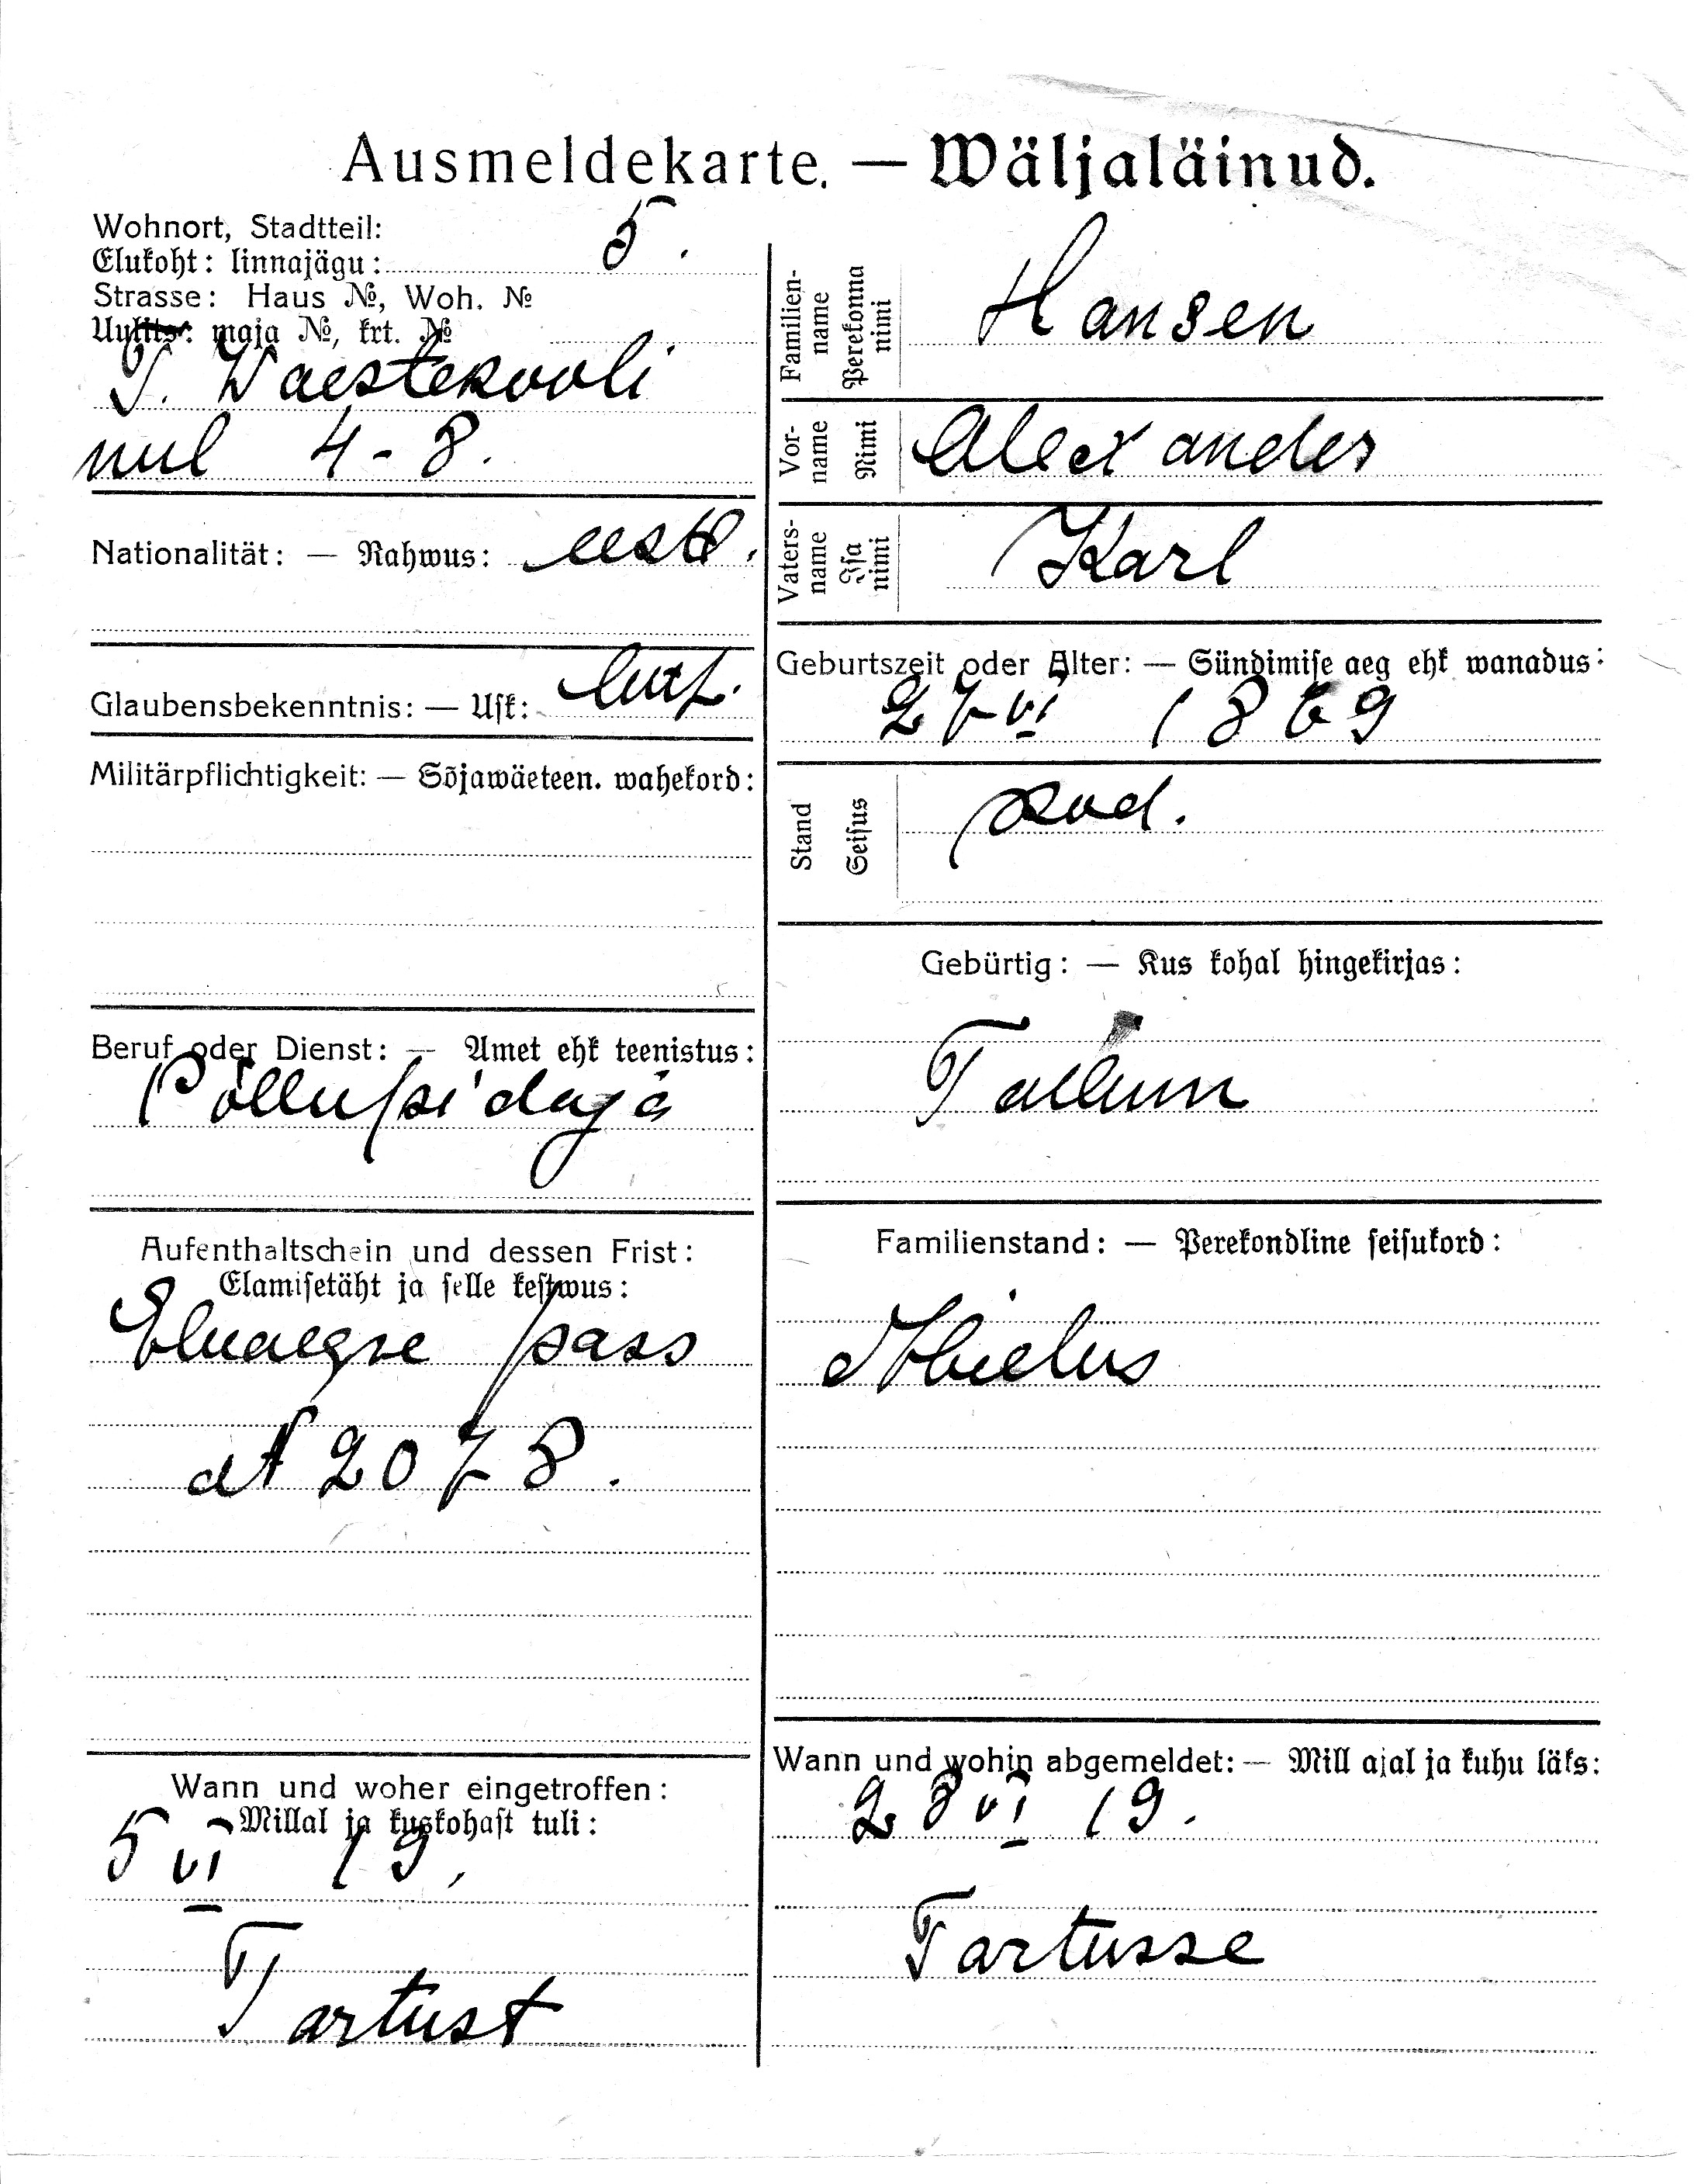 Ausmeldekarte. — Wäljaläinud.
Wohnort, Stadtteil:
Elukoht: linnajägu: 5.
Strasse: Haus №, Woh. №
Uulits: maja №, krt. №
T. Waestekooli
uul 4-8.
Nationalität: — Rahwus: eesti.
Glaubensbekenntnis: — Usk: lut.
Militärpflichtigkeit: — Sõjawäeteen. wahekord:
Beruf oder Dienst: — Amet ehk teenistus:
Põllupidaja
Aufenthaltschein und dessen Frist:
Elamisetäht ja selle kestwus:
Eluaegne pass
№ 2078.
Wann und woher eingetroffen:
Millal ja kuskohast tuli:
5 VI 19.
Tartust
Familien-name Perekonna nimi Hansen
Vor-name Nimi Alexander
Vaters-name Isa nimi Karl
Geburtszeit oder Alter: — Sündimise aeg ehk wanadus:
27 VI 1869
Stand Seisus kod.
Gebürtig: — Kus kohal hingekirjas:
Tallinn
Familienstand: — Perekondline seisukord:
Abielus
Wann und wohin abgemeldet: — Mill ajal ja kuhu läks:
28 VI 19.
Tartusse